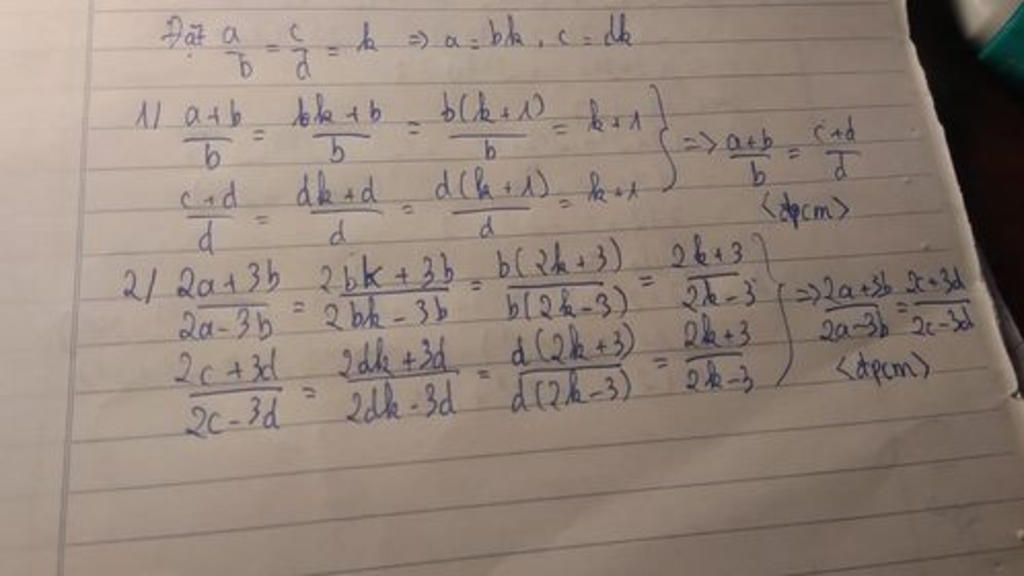 Đặt a/b = c/d = k => a = bk, c = dk
1) (a+b)/b = (bk+b)/b = b(k+1)/b = k+1
(c+d)/d = (dk+d)/d = d(k+1)/d = k+1 } => (a+b)/b = (c+d)/d
<đpcm>
2) (2a+3b)/(2a-3b) = (2bk+3b)/(2bk-3b) = b(2k+3)/b(2k-3) = (2k+3)/(2k-3)
(2c+3d)/(2c-3d) = (2dk+3d)/(2dk-3d) = d(2k+3)/d(2k-3) = (2k+3)/(2k-3) } => (2a+3b)/(2a-3b) = (2c+3d)/(2c-3d)
<đpcm>